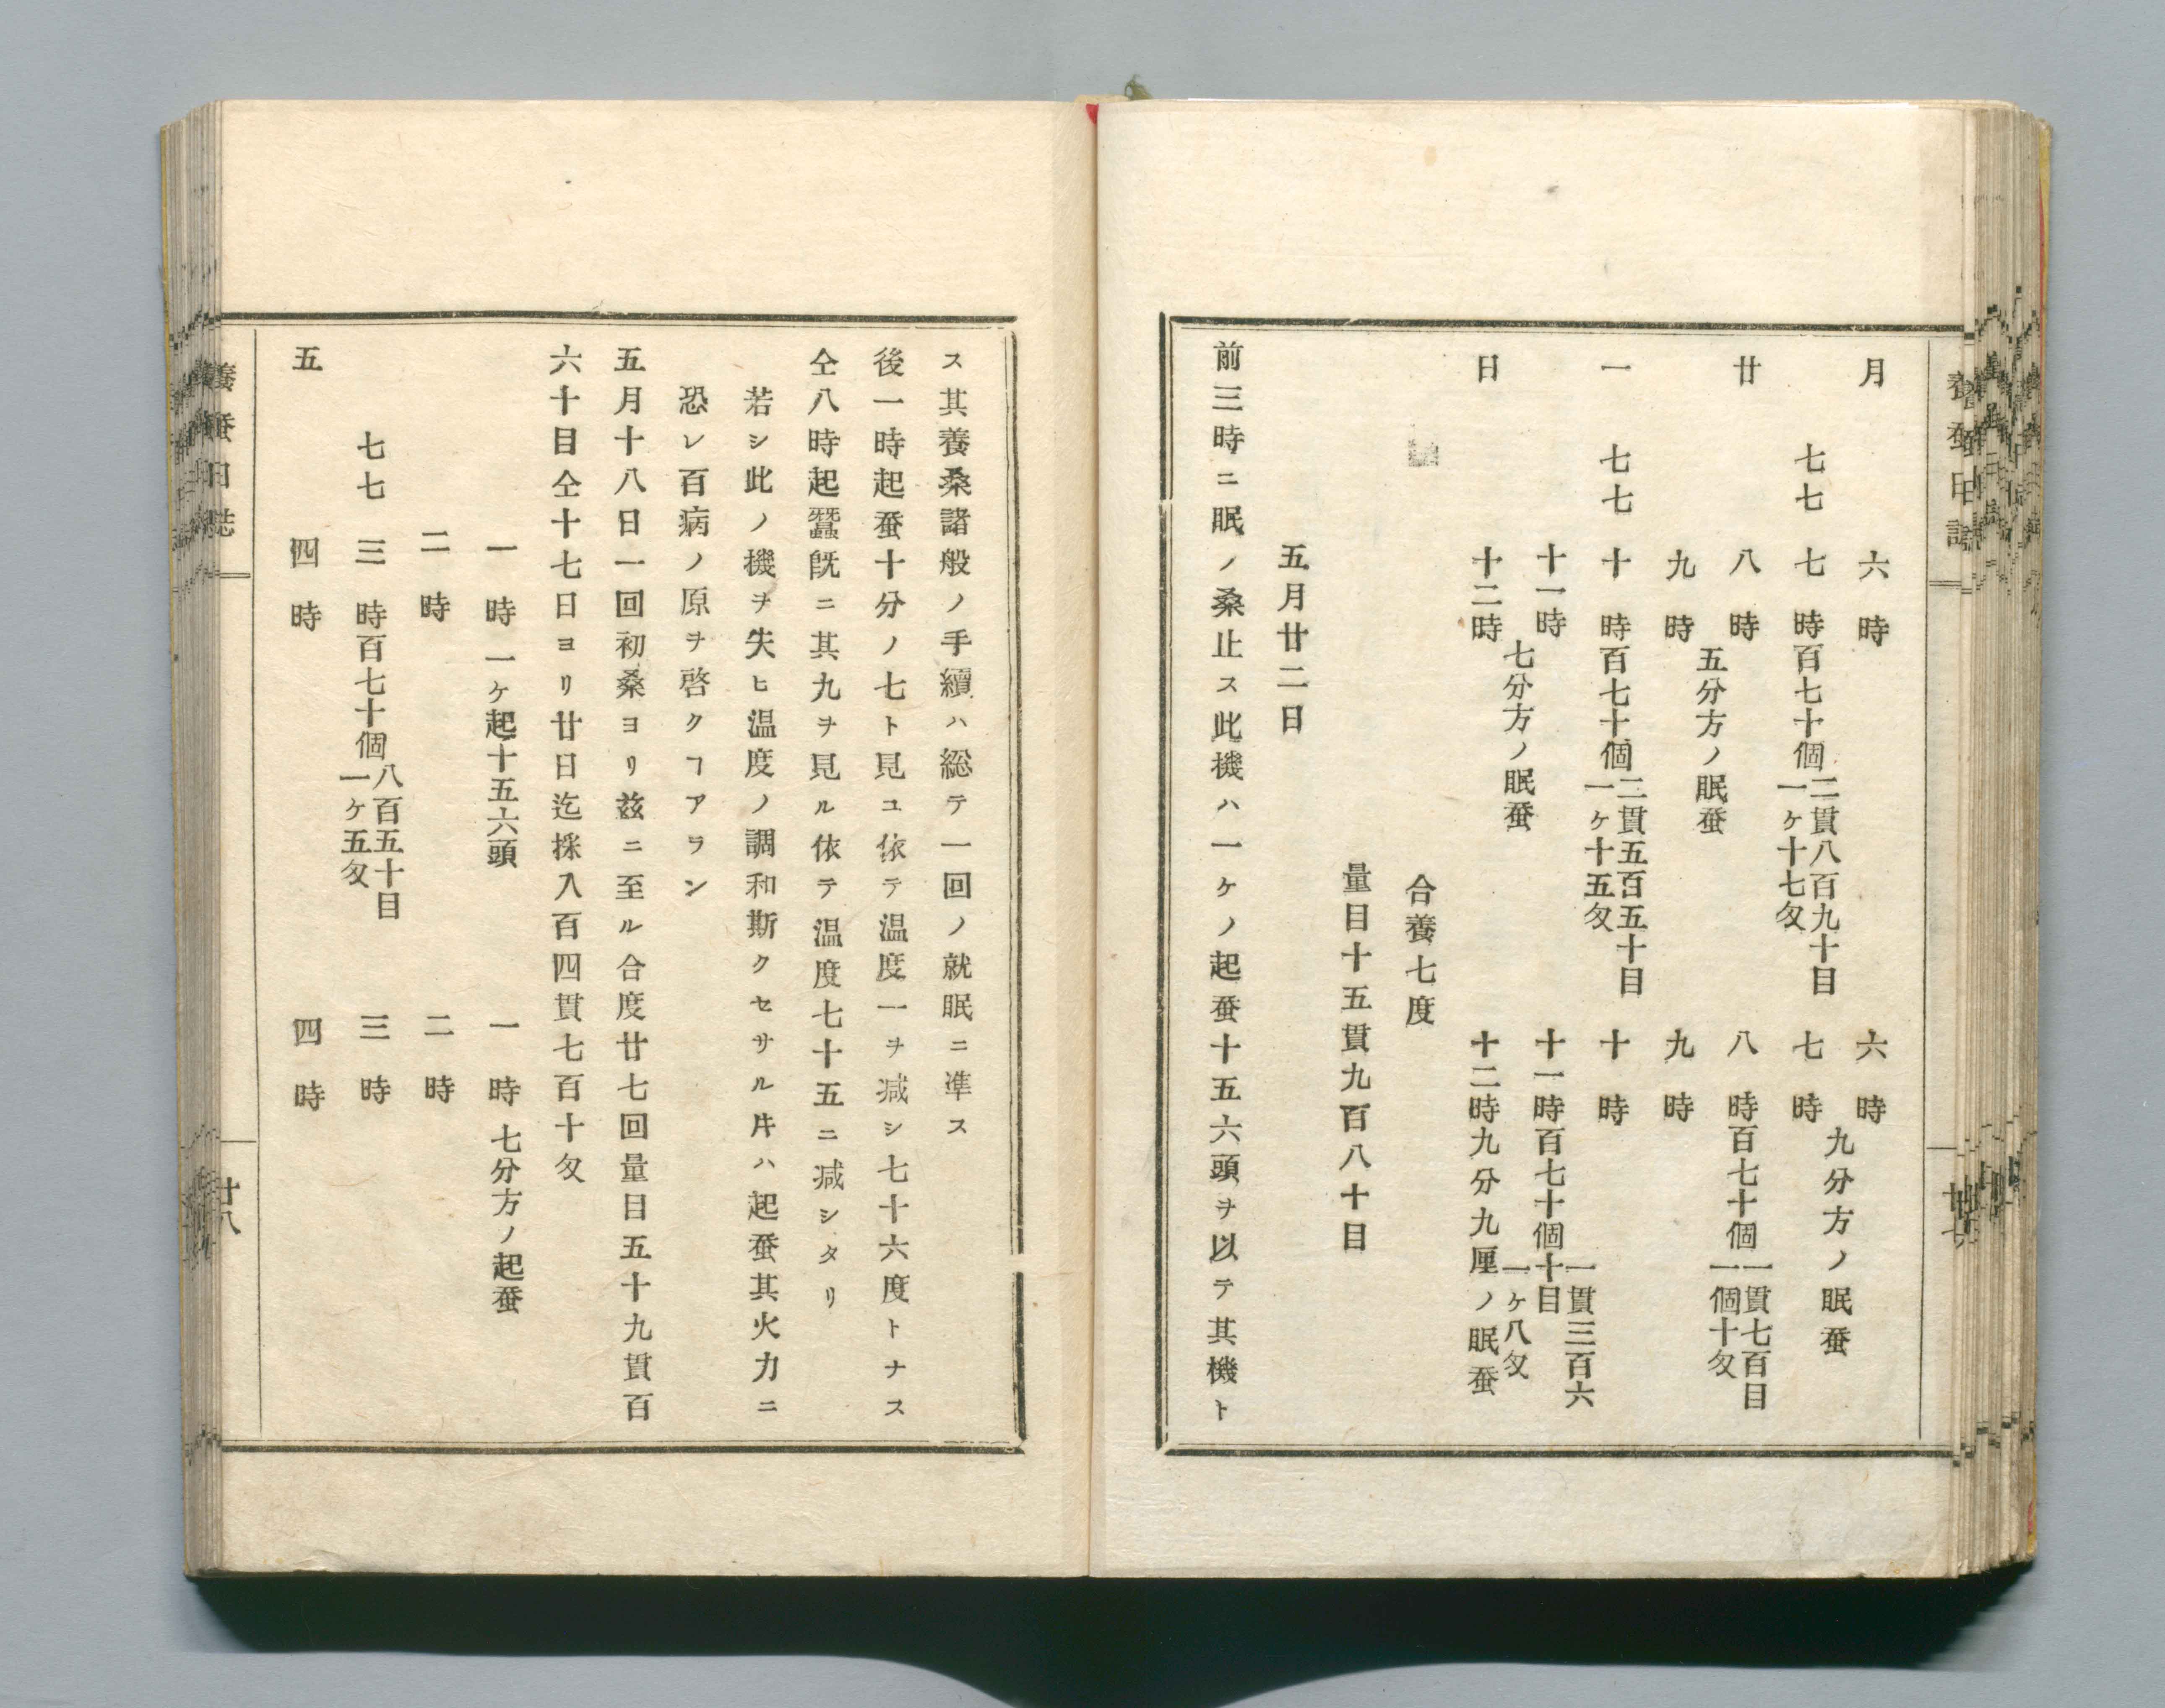 養蚕日誌
月
六時
六時
九分方ノ眠蚕
七七
七時百七十個
二貫八百九十目
一ヶ十七匁
七時
廿
八時
八時百七十個
一貫七百目
一個十匁
五分方ノ眠蚕
九時
九時
一
七七
十時百七十個
二貫五百五十目
一ヶ十五匁
十時
十一時
十一時百七十個
一貫三百六
十目
一ヶ八匁
七分方ノ眠蚕
日
十二時
十二時九分九厘ノ眠蚕
合養七度
量目十五貫九百八十目
五月廿二日
前三時ニ眠ノ桑止ス此機ハ一ヶノ起蚕十五六頭ヲ以テ其機ト
ス其養桑諸般ノ手續ハ総テ一回ノ就眠ニ準ス
後一時起蚕十分ノ七ト見ユ依テ温度一ヲ減シ七十六度トナス
仝八時起蠶既ニ其九ヲ見ル依テ温度七十五ニ減シタリ
若シ此ノ機ヲ失ヒ温度ノ調和斯クセサル𪜈ハ起蚕其火力ニ
恐レ百病ノ原ヲ啓クヿアラン
五月十八日一回初桑ヨリ茲ニ至ル合度廿七回量目五十九貫百
六十目仝十七日ヨリ廿日迄採入百四貫七百十匁
一時
一ヶ起十五六頭
一時
七分方ノ起蚕
二時
二時
七七
三時百七十個
八百五十目
一ヶ五匁
三時
五
四時
四時
養蚕日誌
廿八